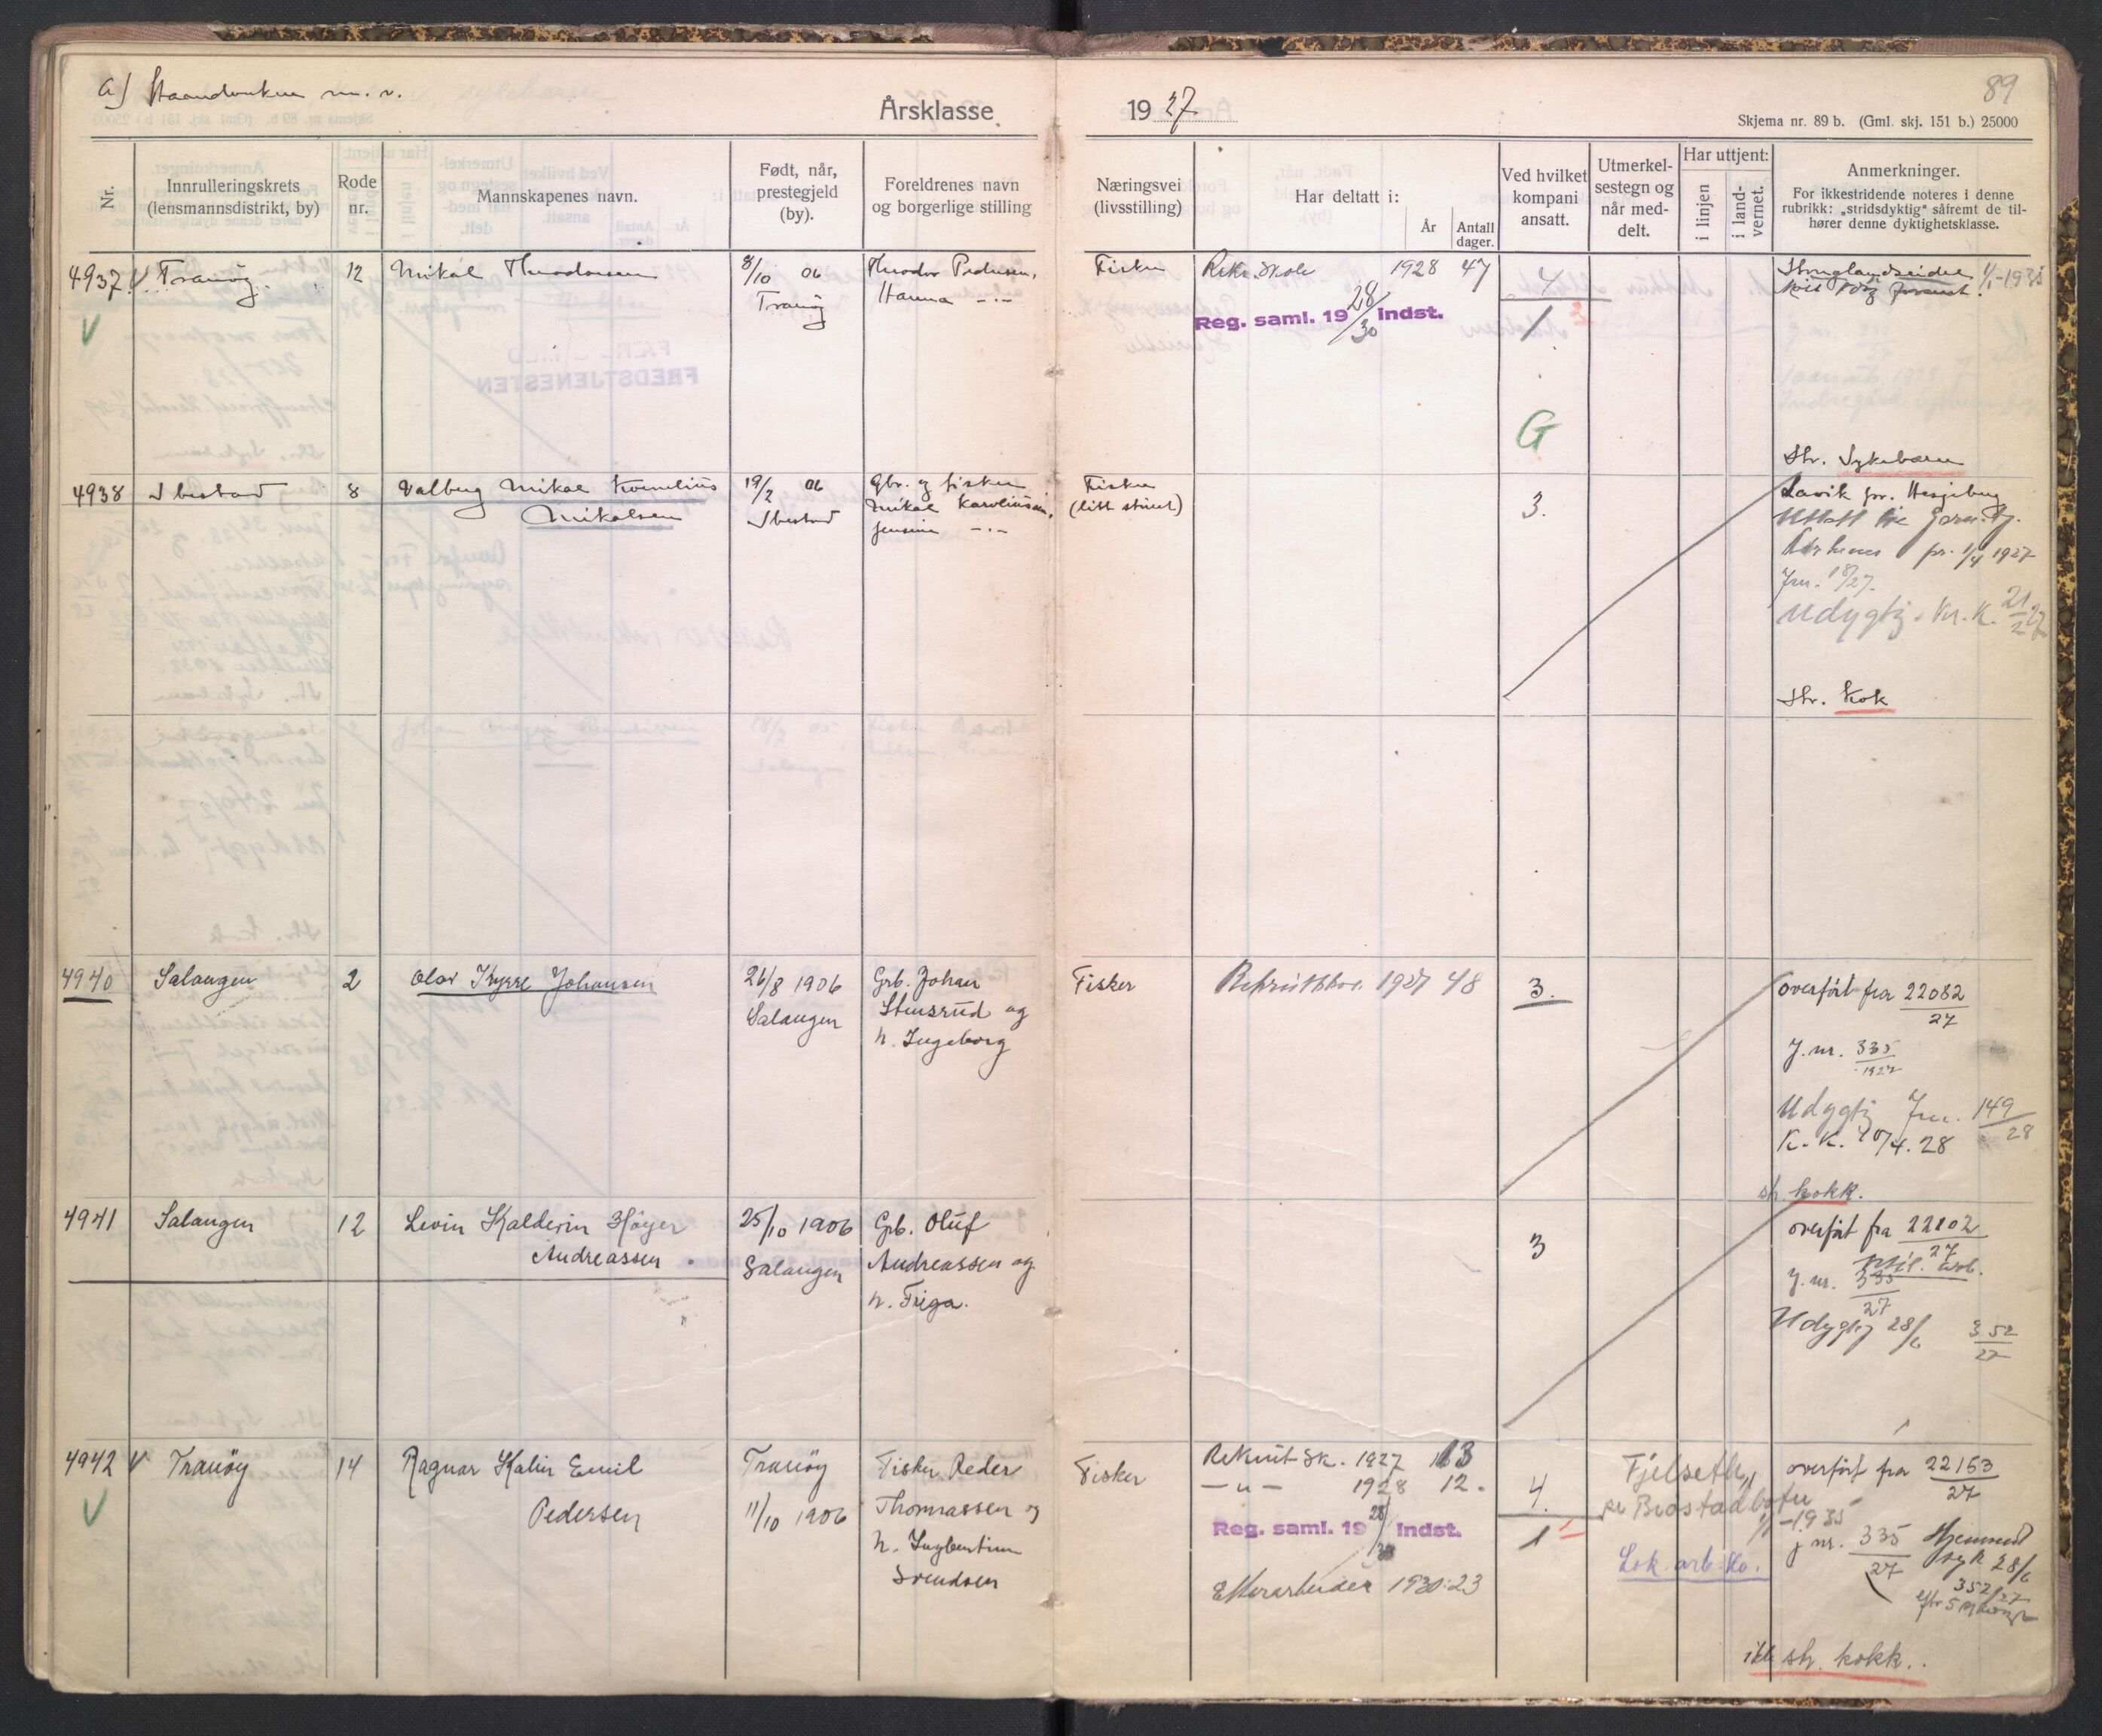 a) Haandverkere m. v.
Årsklasse 1927
89
Skjema nr. 89 b. (Gml. skj. 151 b.) 25000
Nr.
Innrulleringskrets
(lensmannsdistrikt, by)
Rode
nr.
Mannskapenes navn.
Født, når,
prestegjeld
(by).
Foreldrenes navn
og borgerlige stilling
Næringsvei
(livsstilling)
Har deltatt i:
År
Antall
dager.
Ved hvilket
kompani
ansatt.
Utmerkel-
sestegn og
når med-
delt.
Har uttjent:
i linjen
i land-
vernet.
Anmerkninger.
For ikkestridende noteres i denne
rubrikk: „stridsdyktig" såfremt de til-
hører denne dyktighetsklasse.
4937 V Tranöy
12
Mikal Theodorsen
8/10 06
Tranöy
Theodor Pedersen,
Hanna -"-
Fisker
Rekr.skole 1928 47
Reg. saml. 19 28/30 indst.
4
1
G
Stonglandseidet 1/1-1935
Str. Sykebærer
4938
Ibestad
8
Valberg Mikal Kornelius
Mikalsen
19/2 06
Ibestad
Gbr. og fisker
Mikal Karoliussen,
Jensine -"-
Fisker
(litt stuert)
3.
Lavik pr. Hesjeberg
pr. 1/4 1927
Jnr. 18/27.
Udygtig. Kr.K. 21/2 27
Str. Kok
4940
Salangen
2
Olav Trygve Johansen
26/8 1906
Salangen
Grb. Johan
Stensrud og
h. Ingeborg
Fisker
Rekrutskole 1927 48
3.
overført fra 22082
27
J.nr. 335
1927
Udygtig Jnr. 149
28
K.K. 20/4.28
str. kokk.
4941
Salangen
12
Levin Kalderin Höyer
Andreassen
25/10 1906
Salangen
Grb. Oluf
Andreassen og
h. Friga.
3
overført fra 22102
27
J.nr. 335
27
Udygtig 28/6 352
27
4942 V Tranöy
14
Ragnar Kalin Emil
Pedersen
Tranöy
11/10 1906
Fisker Peder
Thomassen og
h. Ingbertine
Svendsen
Fisker
Rekrut sk. 1927 13
-"- 1928 12.
Reg. saml. 19 28/30 indst.
Efterarbeider 1930:23
4.
1
Fjelseth,
pr Brostadbotn
1/1-1935
Lok. arb. ko.
overført fra 22153
27
j nr. 335
27
Hjemsendt
syk 28/6
352/27
ikke str. kokk.